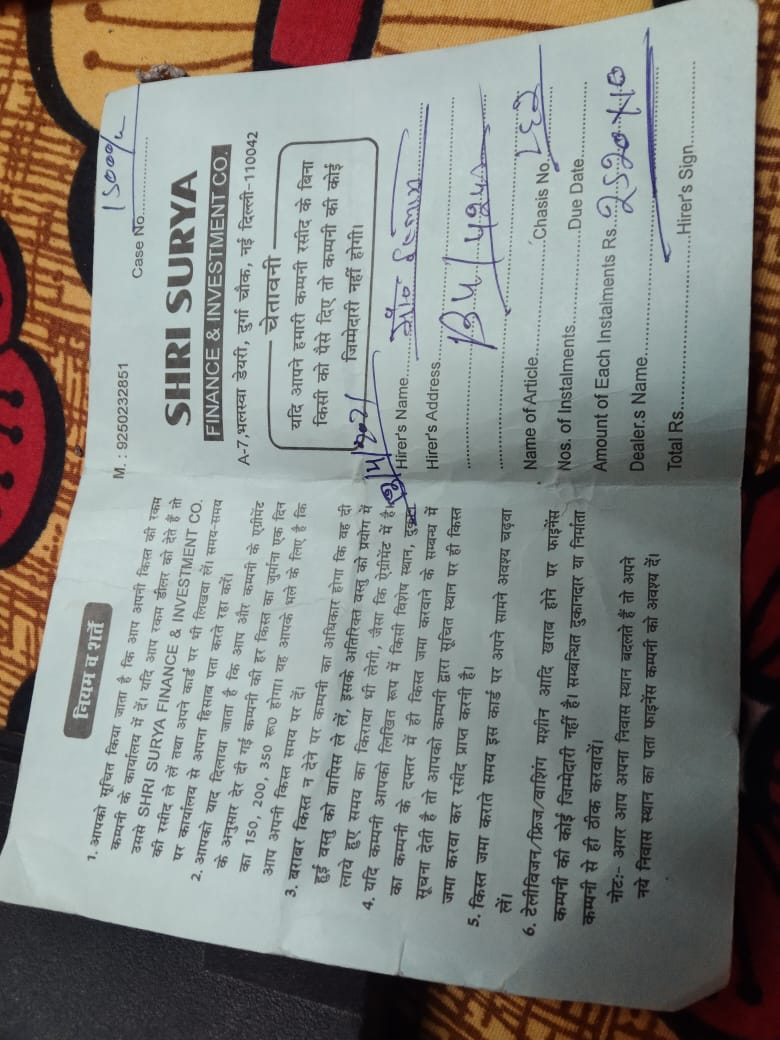 नियम व शर्ते
1. आपको सूचित किया जाता है कि आप अपनी किस्त की रकम
कम्पनी के कार्यालय में दें। यदि आप रकम डीलर को देते हैं तो
उससे SHRI SURYA FINANCE & INVESTMENT CO.
की रसीद ले लें तथा अपने कार्ड पर भी लिखवा लें। समय-समय
पर कार्यालय से अपना हिसाब पता करते रहा करें।
2. आपको याद दिलाया जाता है कि आप और कम्पनी के एग्रीमेंट
के अनुसार देर दी गई कम्पनी की हर किस्त का जुर्माना एक दिन
का 150, 200, 350 रू० होगा। वह आपके भले के लिए है कि
आप अपनी किस्त समय पर दें।
3. बराबर किस्त न देने पर कम्पनी का अधिकार होगा कि वह दी
हुई वस्तु को वापिस ले लें, इसके अतिरिक्त वस्तु को प्रयोग में
लाये हुए समय का किराया भी लेगी, जैसा कि ऐग्रीमेंट में है।
4. यदि कम्पनी आपको लिखित रूप में किसी विशेष स्थान, दुकान
का कम्पनी के दफ्तर में ही किस्त जमा करवाने के सम्बन्ध में
सूचना देती है तो आपको कम्पनी द्वारा सूचित स्थान पर ही किस्त
जमा करवा कर रसीद प्राप्त करनी है।
5. किस्त जमा कराते समय इस कार्ड पर अपने सामने अवश्य चढ़वा
लें।
6. टेलीविजन/फ्रिज/वाशिंग मशीन आदि खराब होने पर फाइनेंस
कम्पनी की कोई जिम्मेदारी नहीं है। सम्बन्धित दुकानदार या निर्माता
कम्पनी से ही ठीक करवायें।
नोट:- अगर आप अपना निवास स्थान बदलते हैं तो अपने
नये निवास स्थान का पता फाइनेंस कम्पनी को अवश्य दें।
15000/
M. : 9250232851 Case No.
SHRI SURYA
FINANCE & INVESTMENT CO.
A-7, भलस्वा डेयरी, दुर्गा चौक, नई दिल्ली-110042
चेतावनी
यदि आपने हमारी कम्पनी रसीद के बिना
किसी को पैसे दिए तो कम्पनी की कोई
जिम्मेदारी नहीं होगी।
Hirer's Name
Hirer's Address
B4/424
Name of Article Chasis No.
Nos. of Instalments Due Date
Amount of Each Instalments Rs. 2520x10
Dealer.s Name
Total Rs. Hirer's Sign.